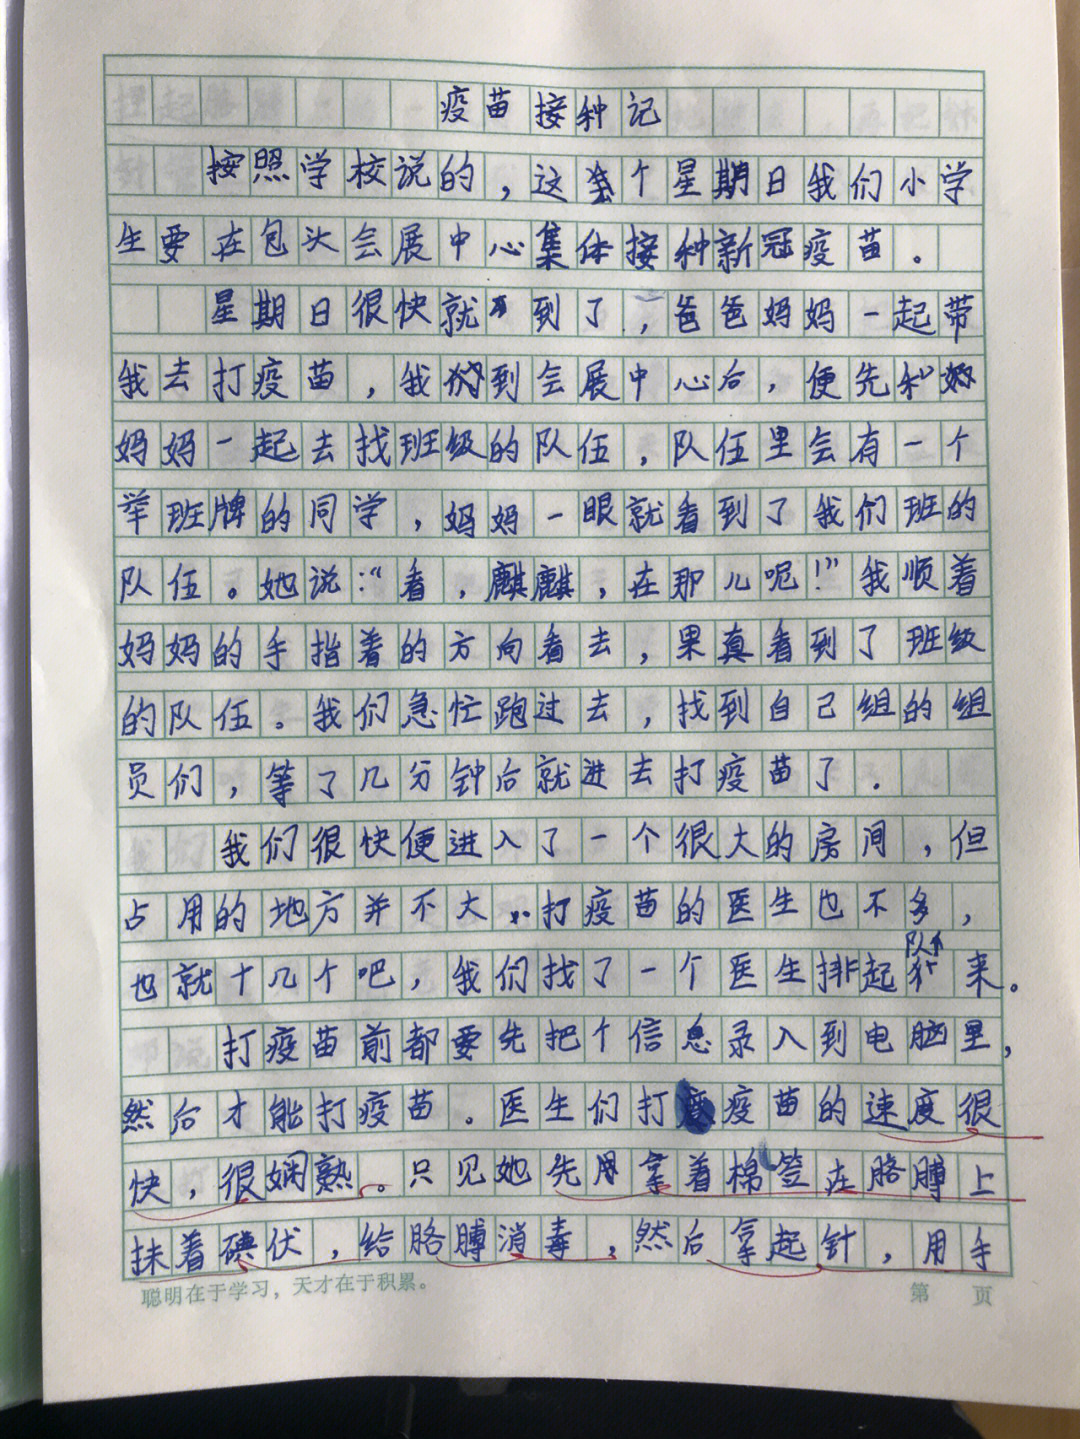 疫苗接种记
按照学校说的，这个星期日我们小学
生要在包头会展中心集体接种新冠疫苗。
星期日很快就到了，爸爸妈妈一起带
我去打疫苗，我们到会展中心后，便先和
妈妈一起去找班级的队伍，队伍里会有一个
举班牌的同学，妈妈一眼就看到了我们班的
队伍。她说：“看，麒麒，在那儿呢！”我顺着
妈妈的手指着的方向看去，果真看到了班级
的队伍。我们急忙跑过去，找到自己组的组
员们，等了几分钟后就进去打疫苗了．
我们很快便进入了一个很大的房间，但
占用的地方并不大，打疫苗的医生也不多，
也就十几个吧，我们找了一个医生排起队来。
打疫苗前都要先把个信息录入到电脑里，
然后才能打疫苗。医生们打疫苗的速度很
快，很娴熟。只见她先用拿着棉签在胳膊上
抹着碘伏，给胳膊消毒，然后拿起针，用手
聪明在于学习，天才在于积累。
第 页